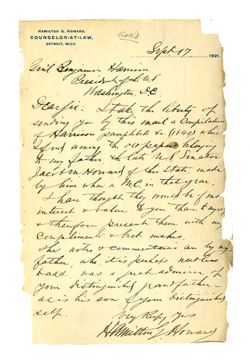 HAMILTON G. HOWARD,
COUNSELOR-AT-LAW,
DETROIT, MICH.
Sept 17 1891.
Genl Benjamin Harrison
President of the U.S.
Washington D.C.
Dear Sir: I take the liberty of
sending you by this mail a Compilation
of Harrison pamphlets &c (1840) which
I found among the old papers belonging
to my father the late U.S. Senator
Jacob M. Howard of this State, made
by him when a M.C. in that year.
I have thought they would be of more
interest & value to you than to myself
& therefore present them with my
compliments & best wishes.
The notes & commentaries are by my
father, who it is perhaps needless
to add was a great admirer of
your distinguished grandfather
as is his son of your distinguished
self.
Very Resp. Yours
Hamilton G. Howard